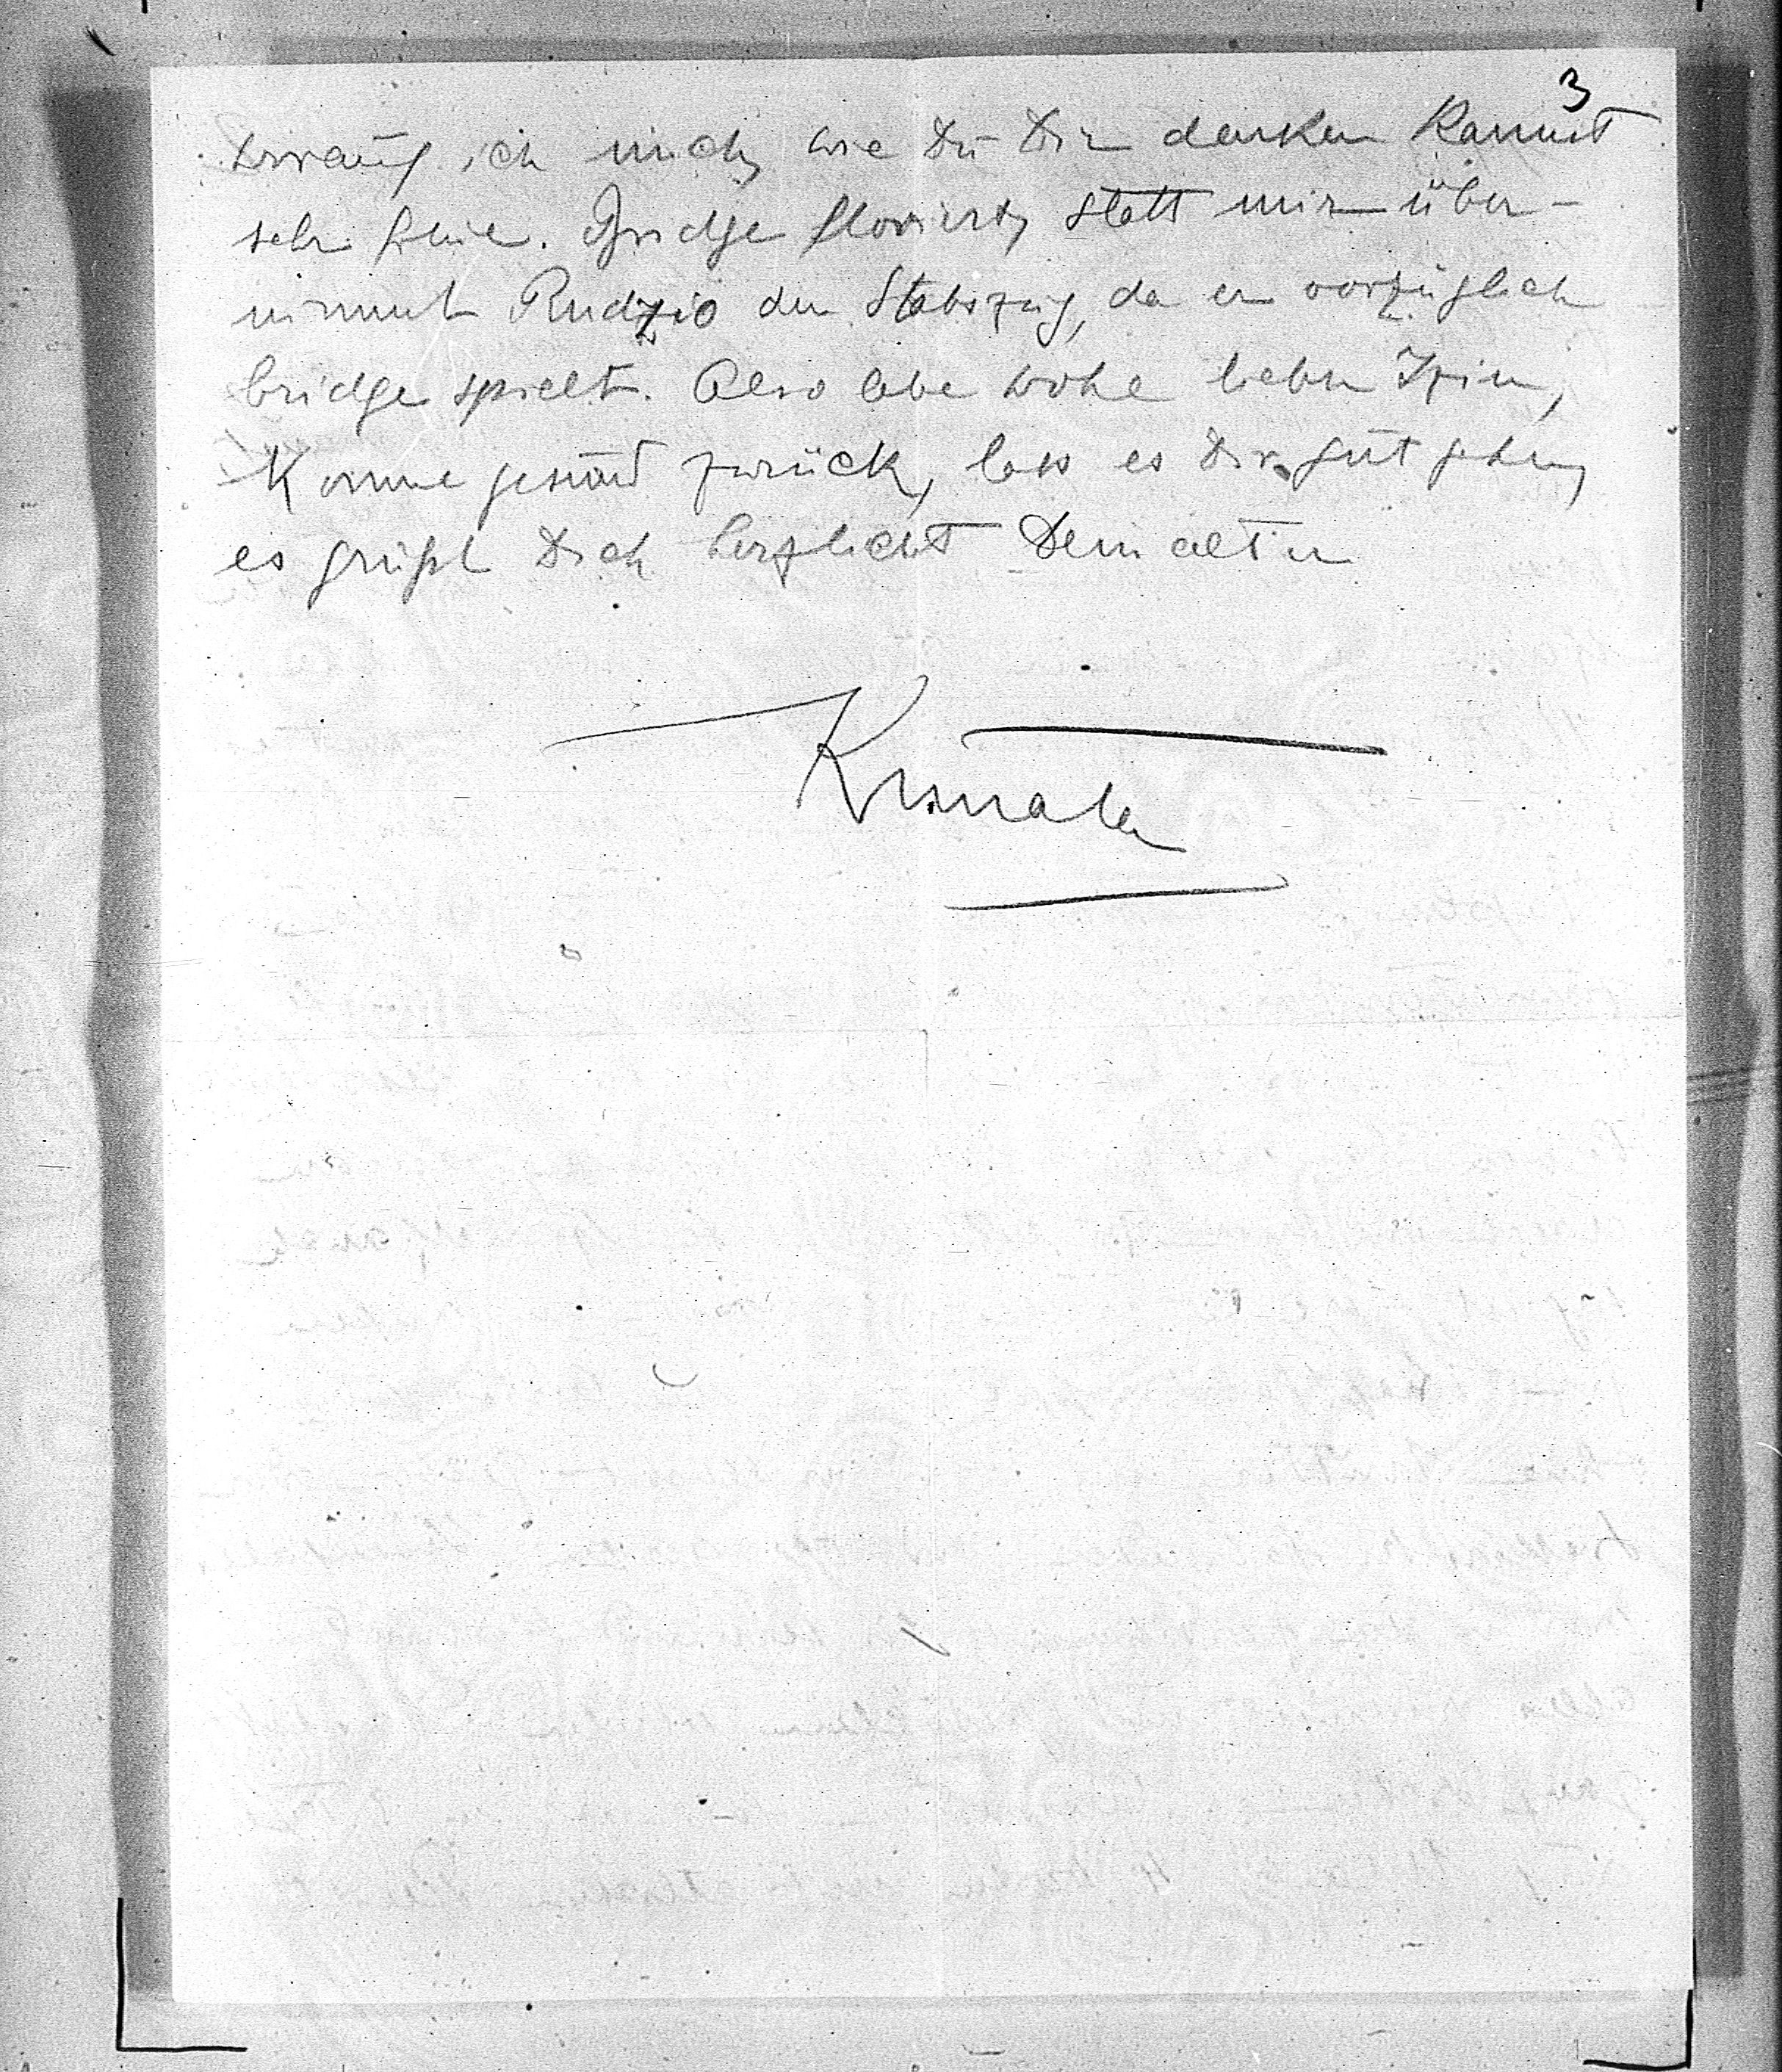 3
worauf ich mich, wie Du Dir denken kannst
sehr freue. Bridge floriert, statt mir über-
nimmt Rudzio den Stabszug, da er vorzüglich
bridge spielt. Also lebe wohl lieber
Komme gesund zurück, lass es Dir gut gehen,
es grüßt Dich herzlichst Dein alter